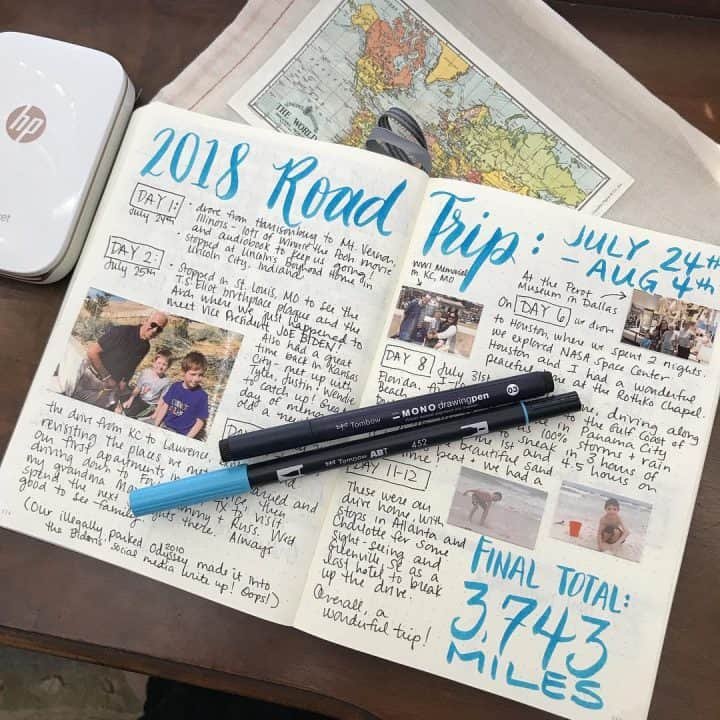 hp
THE WORLD
2018 Road Trip: JULY 24th
- AUG 4th
DAY 1:
July 24th
• drove from Harrisonburg to Mt. Vernon,
Illinois - lots of Winnie the Pooh movie
and audiobook to keep us going!
• stopped at Lincoln's Boyhood Home in
Lincoln City, Indiana
DAY 2:
July 25th
• Stopped in St. Louis, MO to see the
T.S. Eliot birthplace plaque and the
Arch where we just happened to
meet Vice President JOE BIDEN!
Also had a great
time back in Kansas
City - met up with
Tyler, Justin + Wendie
to catch up! Great
day of memories
old &
the drive from KC to Lawrence,
revisiting the places we met
our first apartments
driving down to TX, then
my grandma Mommy + Russ. Wed
spend the next nights there. Always
good to see family.
(Our illegally parked 2010 Odyssey made it into
the Biden's social media write up! Oops!)
WW1 Memorial
in KC, MO
At the Perot
Museum in Dallas
On DAY 6, we drove
to Houston, where we spent 2 nights.
we explored NASA Space Center
Houston and I had a wonderful
peaceful at the Rothko Chapel.
DAY 8 July 31st
Florida.
Beach
driving along
the Gulf Coast of
in Panama City
100% storms + rain
1st in 9 hours of
to sneak in 4.5 hours on
beautiful sand
time beat, we had a
DAY 11-12
These were our
drive home, with
stops in Atlanta and
Charlotte for some
sight seeing and
Greenville SC as a
last hotel to break
up the drive.
Overall, a
wonderful trip!
FINAL TOTAL:
3,743
MILES
Tombow MONO drawingpen 03
Tombow ABT 452